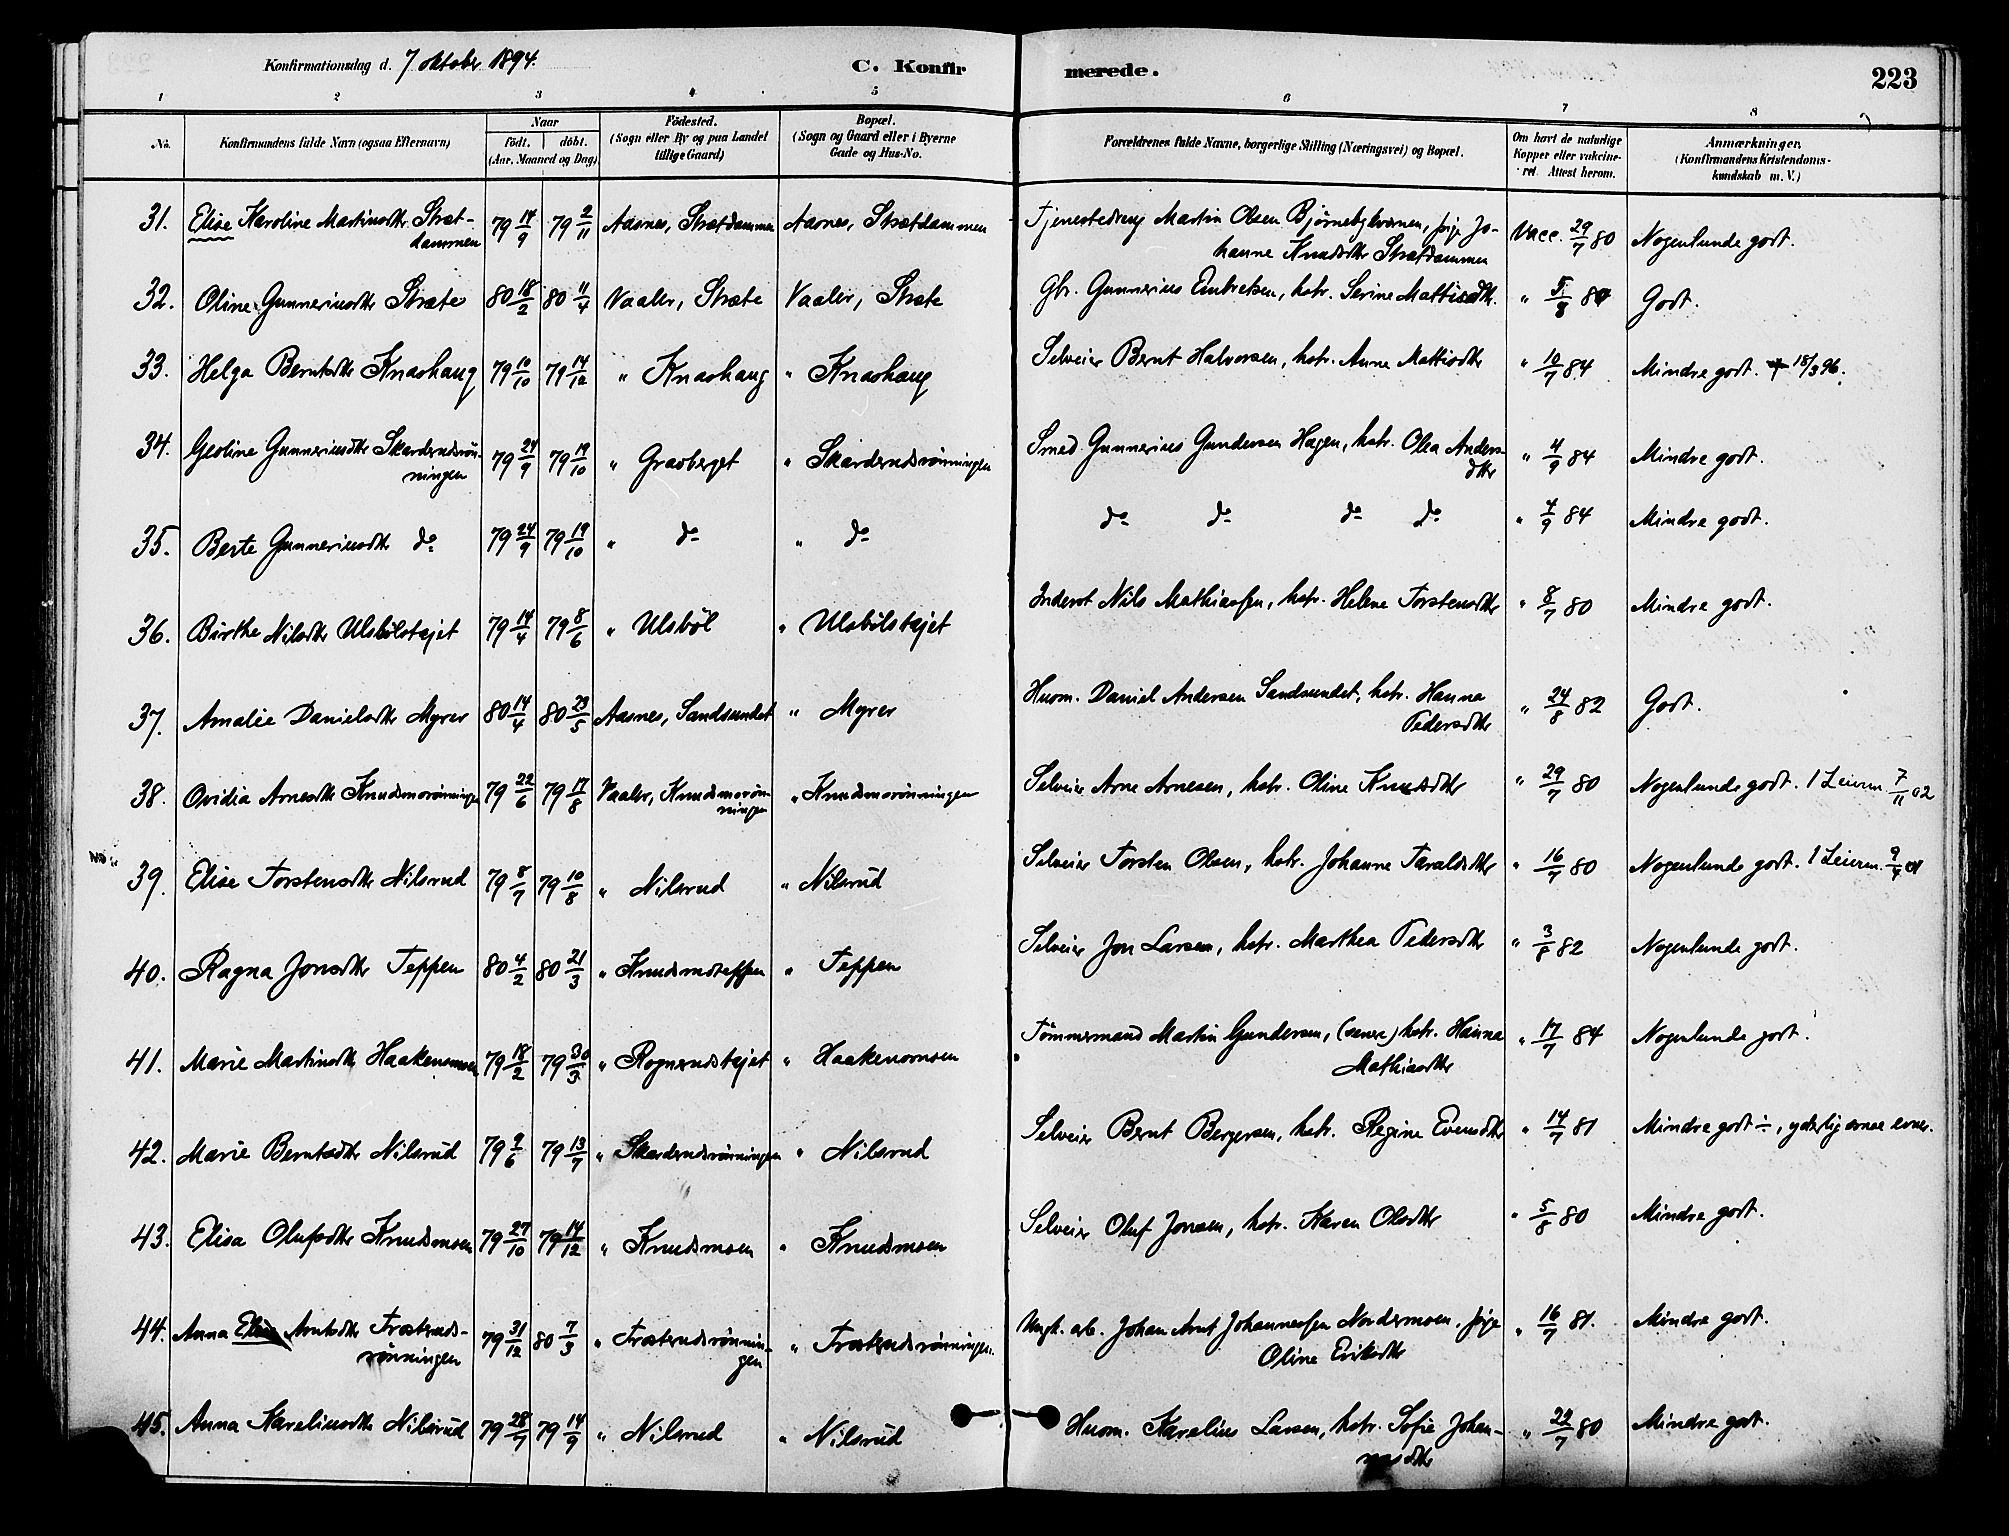 Konfirmationsdag d. 7 oktober 1894.
C. Konfirmerede.
223
1 2 3 4 5 6 7 8
No.
Konfirmandens fulde Navn (ogsaa Efternavn)
Naar
födt. döbt.
(Aar, Maaned og Dag)
Födested.
(Sogn eller By og paa Landet
tillige Gaard)
Bopæl.
(Sogn og Gaard eller i Byerne
Gade og Hus-No.
Forældrenes fulde Navne, borgerlige Stilling (Næringsvei) og Bopæl.
Om havt de naturlige
Kopper eller vakcine-
ret. Attest herom.
Anmærkninger.
(Konfirmandens Kristendoms-
kundskab m. V.)
31. Elise Karoline Martinsdtr. Stræt- 79 14/9 79 2/11 Aasnes, Strætdammen Aasnes, Strætdammen Tjenestedreng Martin Olsen Bjørnebykværnen, pige Jo- Vacc. 29/7 80 Nogenlunde godt.
dammen hanne Knudsdtr Strætdammen
32. Oline Gunneriusdtr Stræte 80 18/2 80 11/4 Vaaler, Stræte Vaaler, Stræte Gbr. Gunnerius Embretsen, hstr. Serine Mattisdtr. " 5/8 84 Godt.
33. Helga Berntsdtr Knashaug 79 10/10 79 14/12 " Knashaug " Knashaug Selveier Bernt Halvorsen, hstr. Anne Mattisdtr " 10/7 84 Mindre godt. † 18/3 96.
34. Geoline Gunneriusdtr Skarderudsrøn- 79 24/9 79 19/10 " Gravberget " Skarderudsrønningen Smed Gunnerius Gundersen Hagen, hstr. Olea Anders- " 4/9 84 Mindre godt.
ningen dtr
35. Berte Gunneriusdtr do 79 24/9 79 19/10 " do " do do do do do " 4/9 84 Mindre godt.
36. Birthe Nilsdtr Ulsbølstøjet 79 14/4 79 8/6 " Ulsbøl " Ulsbølstøjet Inderst Nils Mathiassen, hstr. Helene Torstensdtr " 8/7 80 Mindre godt.
37. Amalie Danielsdtr Myrer 80 14/4 80 23/5 Aasnes, Sandsundet " Myrer Husm. Daniel Andersen Sandsundet, hstr. Hanna " 24/8 82 Godt.
Pedersdtr
38. Ovidia Arnesdtr Knudsmorønningen 79 22/6 79 17/8 Vaaler, Knudsmorøn- " Knudsmorønningen Selveier Arne Arnesen, hstr. Oline Knudsdtr " 29/7 80 Nogenlunde godt. 1 Leierm. 7/11 02
ningen
39. Elise Torstensdtr Nilsrud 79 8/7 79 10/8 " Nilsrud " Nilsrud Selveier Torsten Olsen, hstr. Johanne Taraldsdtr " 16/7 80 Nogenlunde godt. 1 Leierm. 9/4 01
40. Ragna Jonsdtr Teppen 80 4/2 80 21/3 " Knudsmoteppen " Teppen Selveier Jon Larsen, hstr. Marthea Pedersdtr " 3/8 82 Nogenlunde godt.
41. Marie Martinsdtr Haakensmoen 79 18/2 79 30/3 " Rognerudstøjet " Haakensmoen Tømmermand Martin Gundersen, hstr. Hanna " 17/7 84 Nogenlunde godt.
Mathiasdtr
42. Marie Berntsdtr Nilsrud 79 9/6 79 13/7 " Skarderudsrønningen " Nilsrud Selveier Bernt Bergersen, hstr. Regine Evensdtr " 14/7 81 Mindre godt ÷, yderlig evner.
43. Elisa Olufsdtr Knudsmoen 79 27/10 79 14/12 " Knudsmoen " Knudsmoen Selveier Oluf Jonsen, hstr. Karen Olsdtr " 5/8 80 Mindre godt.
44. Anna Elise Arntsdtr Frostruds- 79 31/12 80 7/3 " Frostrudsrønnin- " Frostrudsrønningen. Ungk. arb. Johan Arnt Johannessen Nordermoen, pige " 16/7 81. Mindre godt.
rønningen gen Oline Eriksdtr
45. Anna Kareliusdtr Nilsrud 79 28/7 79 14/9 " Nilsrud " Nilsrud Husm. Karelius Larsen, hstr. Sofie Johan- " 22/7 80 Mindre godt.
nesdtr